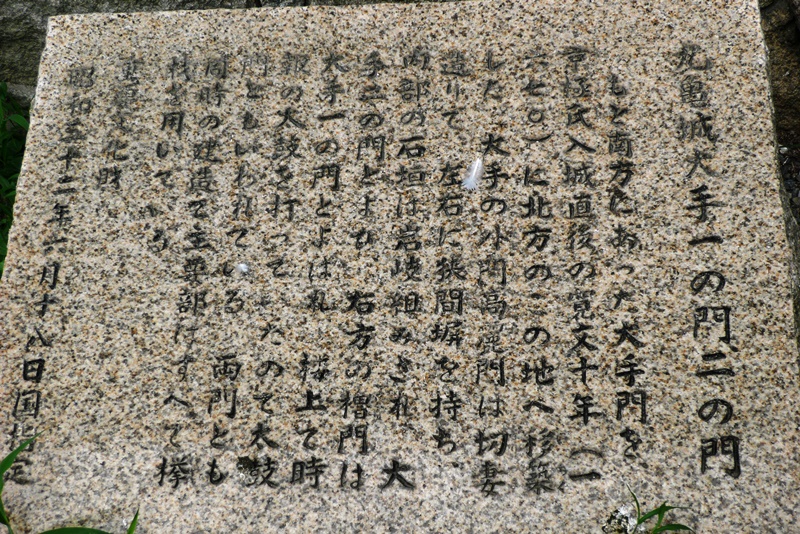 丸亀城大手一の門二の門
もと南方にあった大手門を
京極氏入城直後の寛文十年(一
六七〇)に北方のこの地へ移築
した 大手の外門高麗門は切妻
造りで 左右に狭間塀を持ち
内部の石垣は岩岐組みされ 大
手二の門とよび 右方の櫓門は
大手一の門とよばれ 楼上で時
報の太鼓を打って いたので太鼓
門ともいわれている 両門とも
同時の建造で主要部はすべて欅
材を用いて いる
重要文化財
昭和三十二年一月十八日国指定